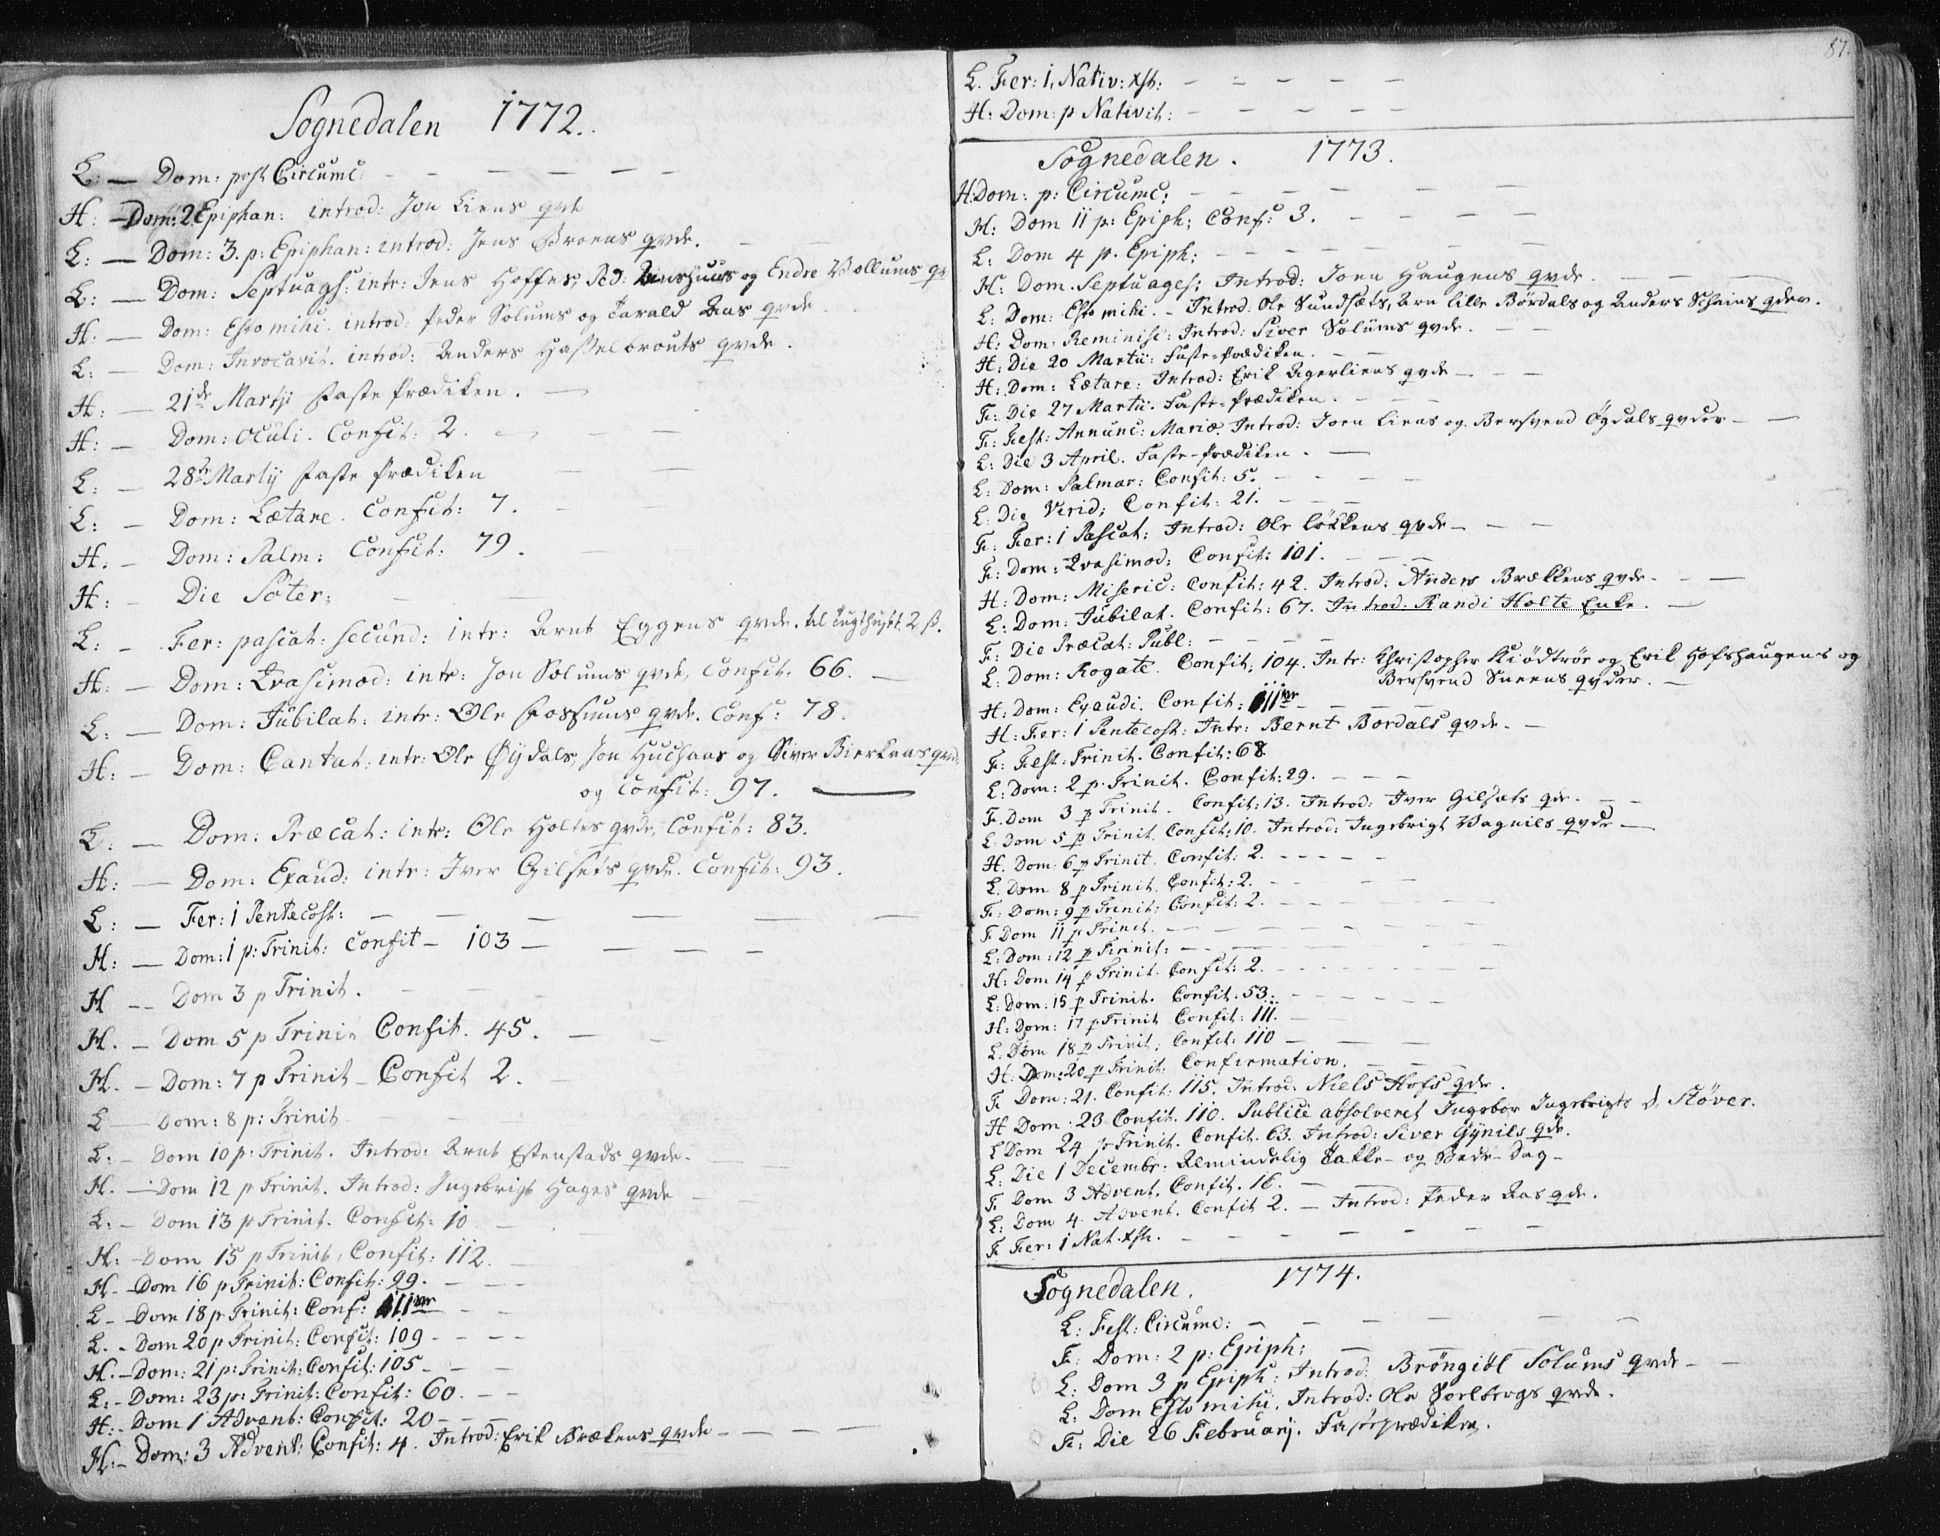 Sognedalen 1772.
L: — Dom: post Circumc: — — — — — —
H: — Dom: 2 Epiphan: introd: Jon Liens qvde
L: — Dom: 3. p: Epiphan: introd: Jens Broens qvde. —
L: — Dom: Septuags: intr: Jens Hoffes, Ped: Aashuus og Endre Vollums qv
H: — Dom: Esto mihi. introd: Peder Solums og Tarald Aas qvde
L: — Dom: Invocavit. introd: Anders Hasselbrouts qvde.
H: — 21de Martji Faste Prædiken. —
H: — Dom: Oculi. Confit: 2. — — —
L: — 28de Martij Faste Prædiken — —
L: — Dom: Lætare. Confit: 7. —
H. — Dom: Palm: Confit: 79. —
H: — Die Soter; — —
L: — Fer: pascat: secund: intr: Arnt Eggens qvde. til Tugthuset 2 ß.
H: — Dom: Qvasimod: intr: Jon Solums qvde, Confit. 66. —
L: — Dom: Jubilat: intr: Ole Fossums qvde. Conf: 78.
H: — Dom: Cantat: intr: Ole Øydals, Jon Huchaas og Siver Bierkaas qvde
og Confit: 97. —
L: — Dom: Præcat: intr: Ole Holtes qvde, Confit: 83.
H: — Dom: Exaud: intr: Iver Gilsets qvde. Confit: 93.
L: — Fer: 1 Pentecost: — — — — — —
H: — Dom: 1 p: Trinit: Confit — 103 — — — — —
H — Dom 3 p Trinit. — — —
H. — Dom 5 p Trinit Confit. 45. — —
H. — Dom: 7 p Trinit — Confit 2. —
L — Dom: 8 p: Trinit — —
L: — Dom 10 p: Trinit. Introd: Arnt Estenstads qvde. —
H. — Dom 12 p Trinit. Introd: Ingebrigt Hages qvde —
L: — Dom 13 p Trinit. Confit: 10 —
H: — Dom 15 p Trinit, Confit: 112. —
H — Dom 16 p Trinit: Confit: 99. — — —
L — Dom 18 p Trinit: Conf: 111 — —
L. — Dom 20 p Trinit: Confit: 109 — — — —
H. — Dom: 21 p: Trinit: Confit: 105 — — —
L: — Dom: 23 p: Trinit: Confit: 60. — —
H: — Dom 1 Advent: Confit: 20 — — —
H: — Dom: 3 Advent: Confit: 4. Introd: Erik Brækens qvde — — — — —
87.
L. Fer: 1, Nativ: Xsti: — — — — —
H: Dom: p Nativit: — — — — —
Sognedalen. 1773.
H. Dom: p: Circumc; — — — — — — —
H: Dom 11 p: Epiph; Conf: 3. — — — —
L: Dom 4 p. Epiph; — — — — — — —
H: Dom. Septuages; Introd: Joen Haugens qvde. — — —
L: Dom: Esto mihi. — Introd: Ole Sundsæts, Arn lille Børdals og Anders qder.
H: Dom: Reminisc: Introd: Siver Solums qvde. — —
H: Die 20 Martii: Faste-Prædiken. — —
H: Dom: Lætare: Introd: Erik Agerliens qvde — — —
F: Die 27 Martii. Faste-Prædiken. — — —
F: Fest: Annunc: Mariæ. Introd: Joen Liens og Bersvend Øgdals qvder — —
L: Die 3 April. Faste-Prædiken. —
L: Dom: Palmar: Confit: 5. — — — —
L: Die Virid; Confit: 21. — — —
F: Fer: 1 Pascat: Introd: Ole Løkkens qvde — — —
F: Dom: Qvasimod; Confit: 101. — — — —
H: Dom: Miseric: Confit: 42. Introd; Anders Brækkens qvde. — —
L: Dom: Jubilat. Confit: 67. Introd: Randi Holte Enke. —
F: Die Præcat: Publ: — — — —
L: Dom: Rogate. Confit; 104. Intr: Christopher Kiødtrøe og Erik Hofshaugens og
Bersvend Sneens qvder. —
H: Dom: Exaudi. Confit; 111 — — — —
H: Fer: 1 Pentecost: Intr: Bernt Bordals qvde. —
F: Fest: Trinit. Confit: 68
L: Dom: 2 p. Trinit. Confit: 29. — — —
F. Dom 3 p Trinit. Confit: 13. Introd: Iver Gilsæts qde. — —
L. Dom 5 p Trinit. Confit: 10. Introd: Ingebrigt Vagnils qvde —
H. Dom. 6 p Trinit. Confit: 2. — — — — —
L. Dom 8 p Trinit. Confit: 2. — — —
F: Dom: 9 p Trinit; Confit: 2. — — — — —
F Dom 11 p Trinit. — — — — — — —
L: Dom: 12 p Trinit: — — — — — — —
H: Dom 14 p Trinit. Confit: 2. — — — — — —
L: Dom: 15 p Trinit. Confit. 53: — — — — —
H: Dom: 17 p Trinit Confit: 111. — —
L: Dom 18 p Trinit, Confit: 110 — — —
H: Dom: 20 p Trinit. Confirmation. — —
F Dom: 21. Confit: 115. Introd: Niels Hofs qde.
H Dom: 23. Confit. 110. Publice absolveret Ingebor Ingebrigts d. Støver.
L Dom 24 p Trinit. Confit. 63. Introd: Siver Gynils qde.
L: Die 1 Decembr: Almindelig Takke- og Bede-Dag —
F Dom 3 Advent. Confit. 16. — — —
L: Dom 4. Advent. Confit 2. — Introd: Peder Aas qde.
F Fer: 1 Nat. Xsti. — — — — — — —
Sognedalen. 1774.
L: Fest: Circumc: — — — — — —
F: Dom: 2 p: Epiph; — — —
L: Dom 3 p Epiph: Introd: Brøngiöl Solums qvde — —
L: Dom Esto mihi. Introd: Ole Sorlbergs qvde.
F: Die 26 Februarij. Fasteprædiken.